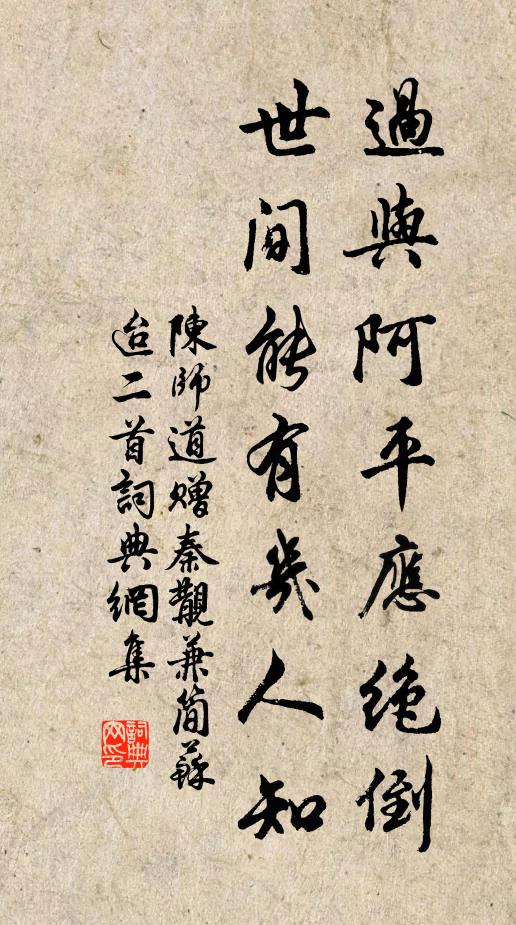 過與阿平應絕倒
世間能有幾人知
陳師道贈秦觀兼簡蘇
迨二首詞典網集
詞典